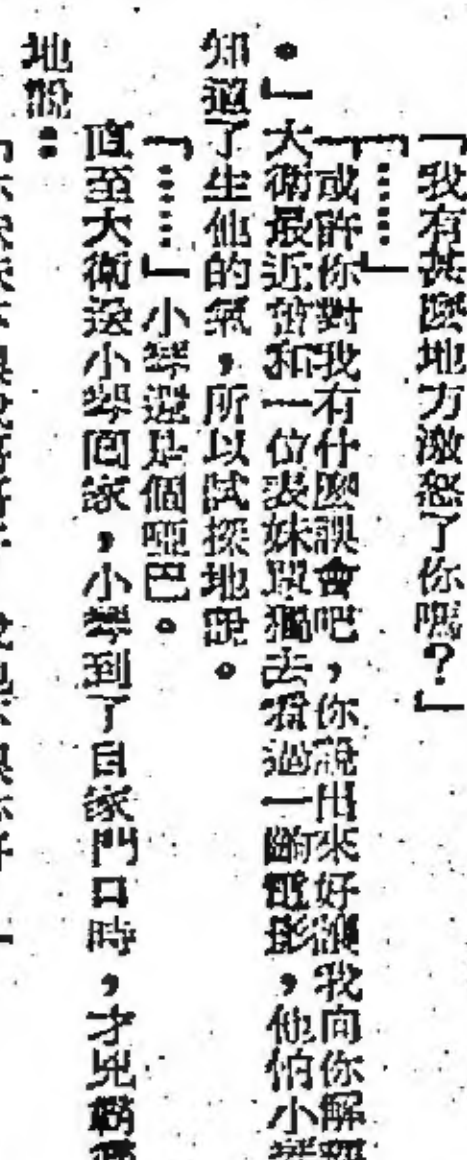 「我有甚麼地方激怒了你嗎？」
「……」
「或許你對我有什麼誤會吧，你說出來好讓我向你解釋
。」大衛最近曾和一位表妹單獨去看過一齣電影，他怕小琴
知道了生他的氣，所以試探地說。
「……」小琴還是個啞巴。
直至大衛送小琴回家，小琴到了自家門口時，才兇霸霸
地說：